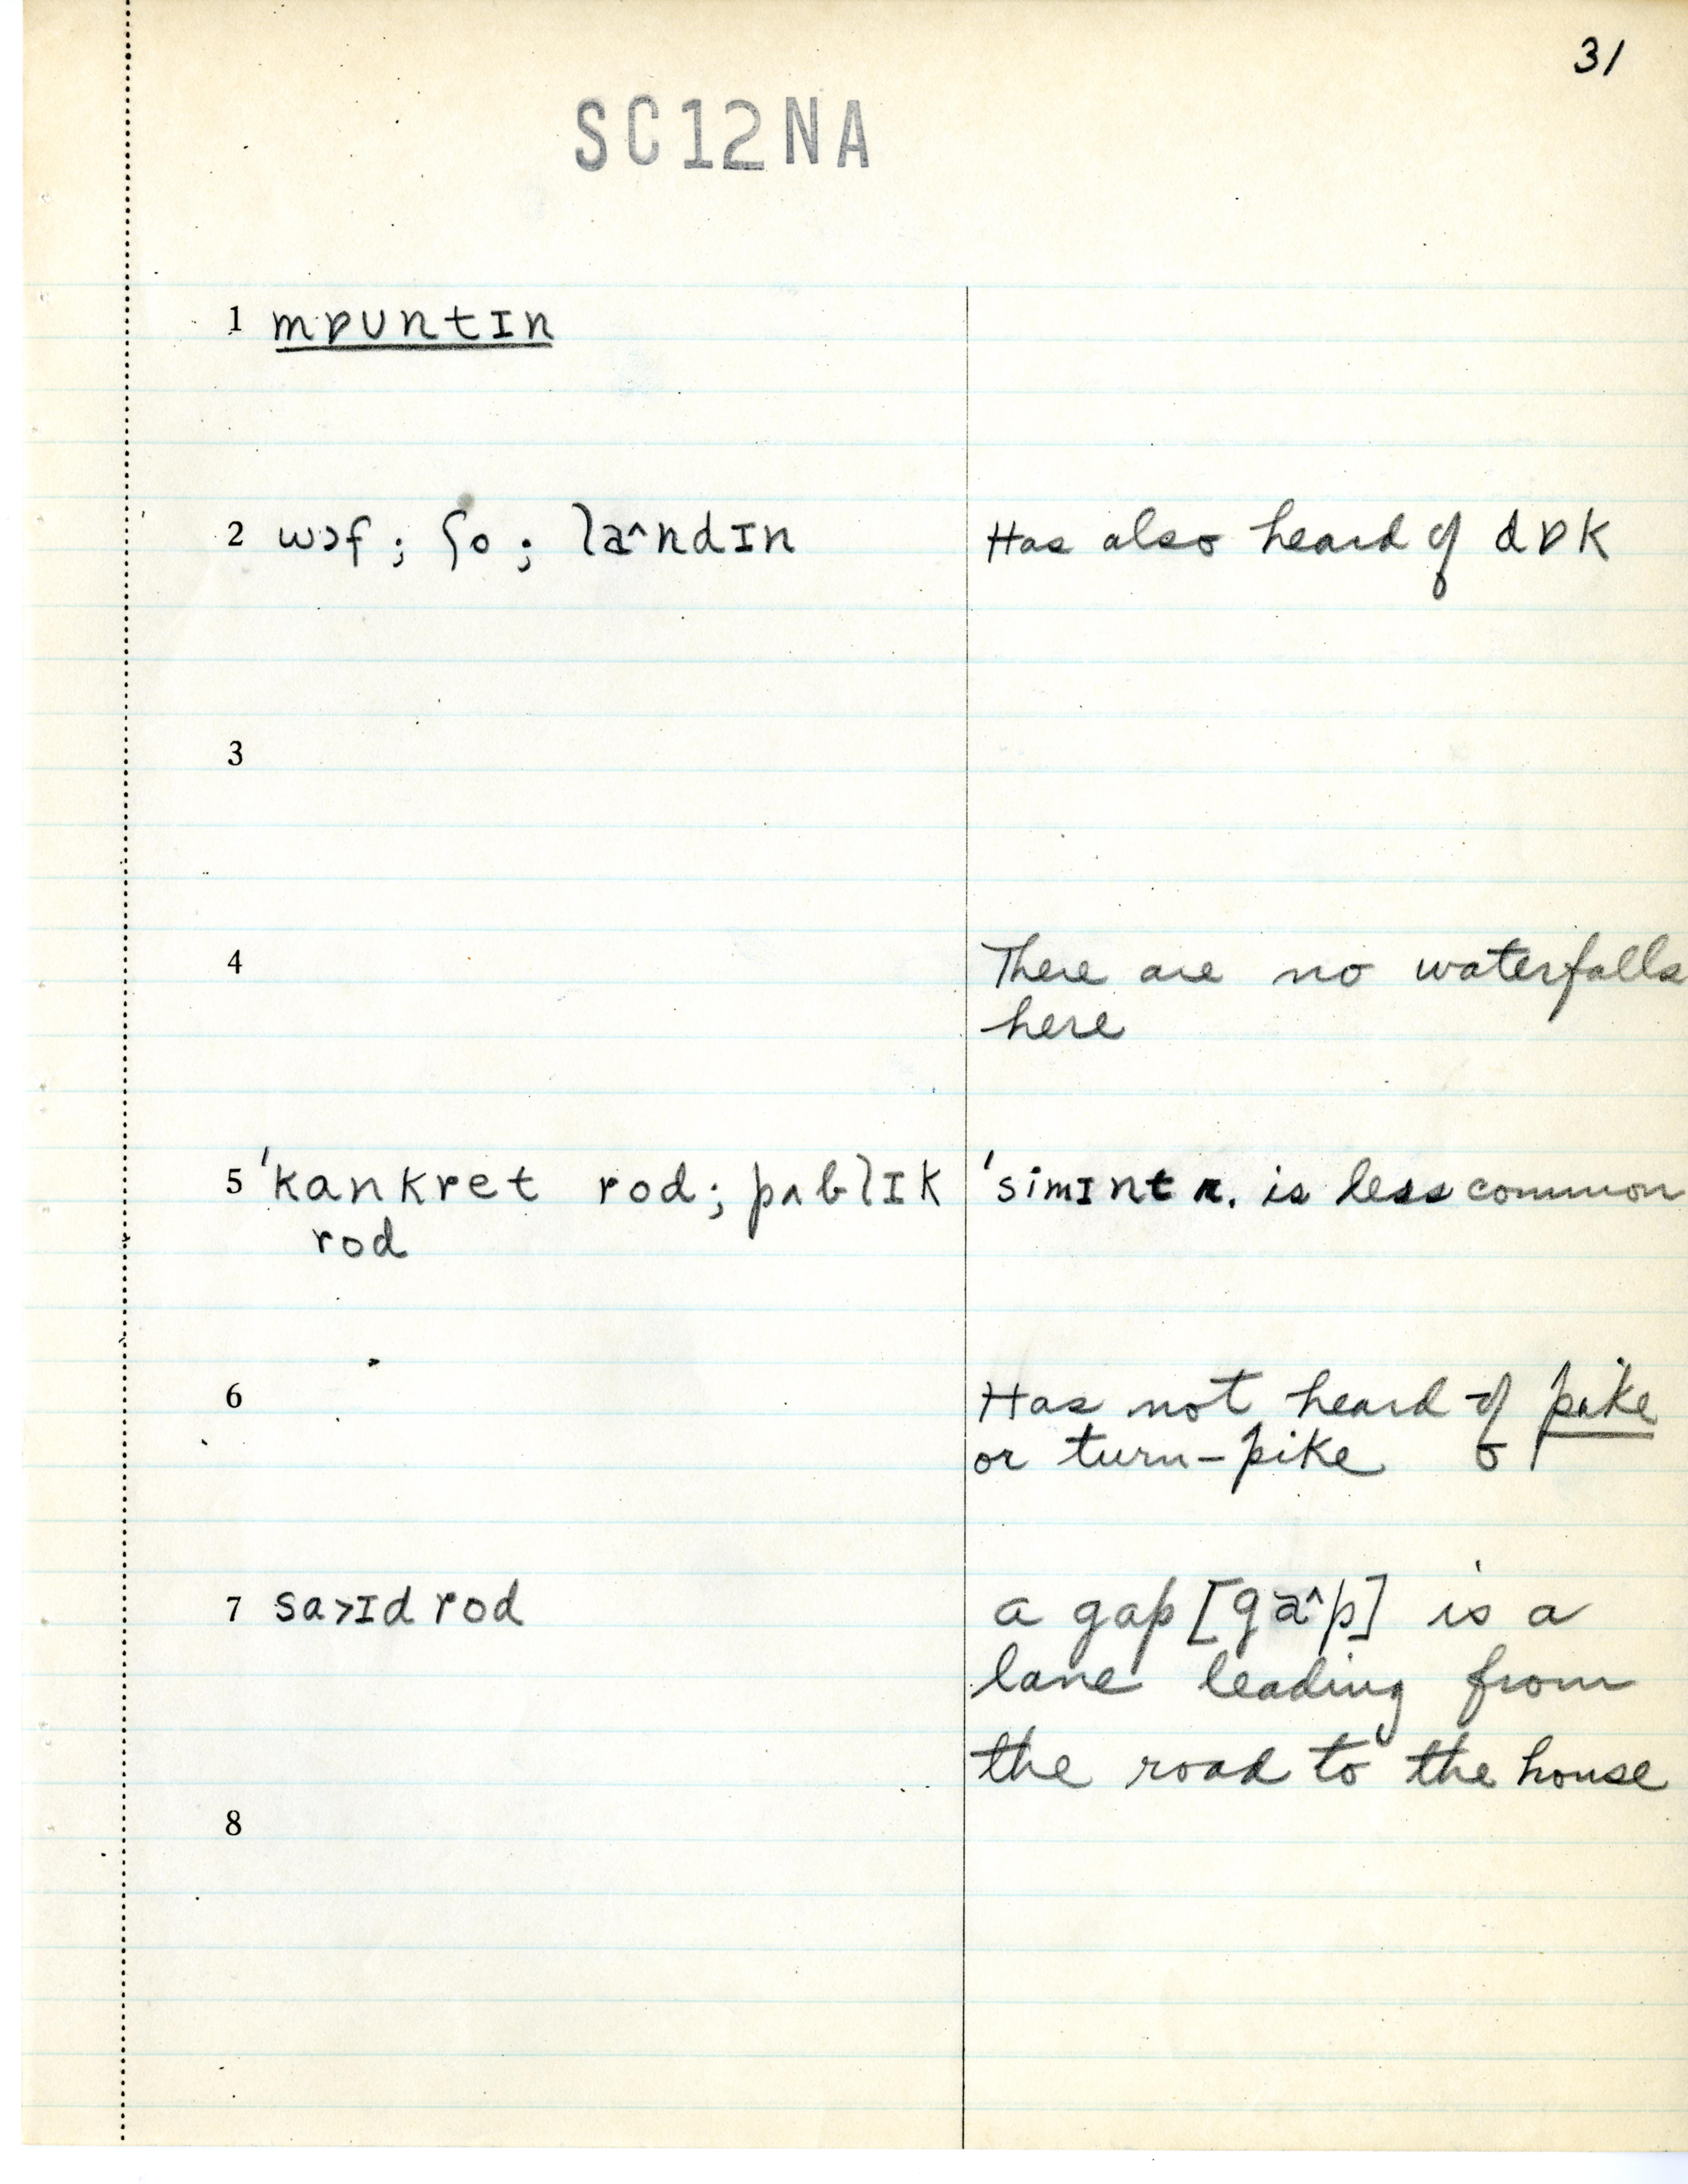 31
SC12NA
1 mɒʊntɪn
2 wɔf ; ʃo ; la^ndɪn Has also heard of dɒk
3
4 There are no waterfalls
here
5 'kankret rod ; pʌblɪk 'simɪnt r. is less common
rod
6 Has not heard of pike
or turn-pike
7 sa>ɪd rod a gap [ga^p] is a
lane leading from
the road to the house
8